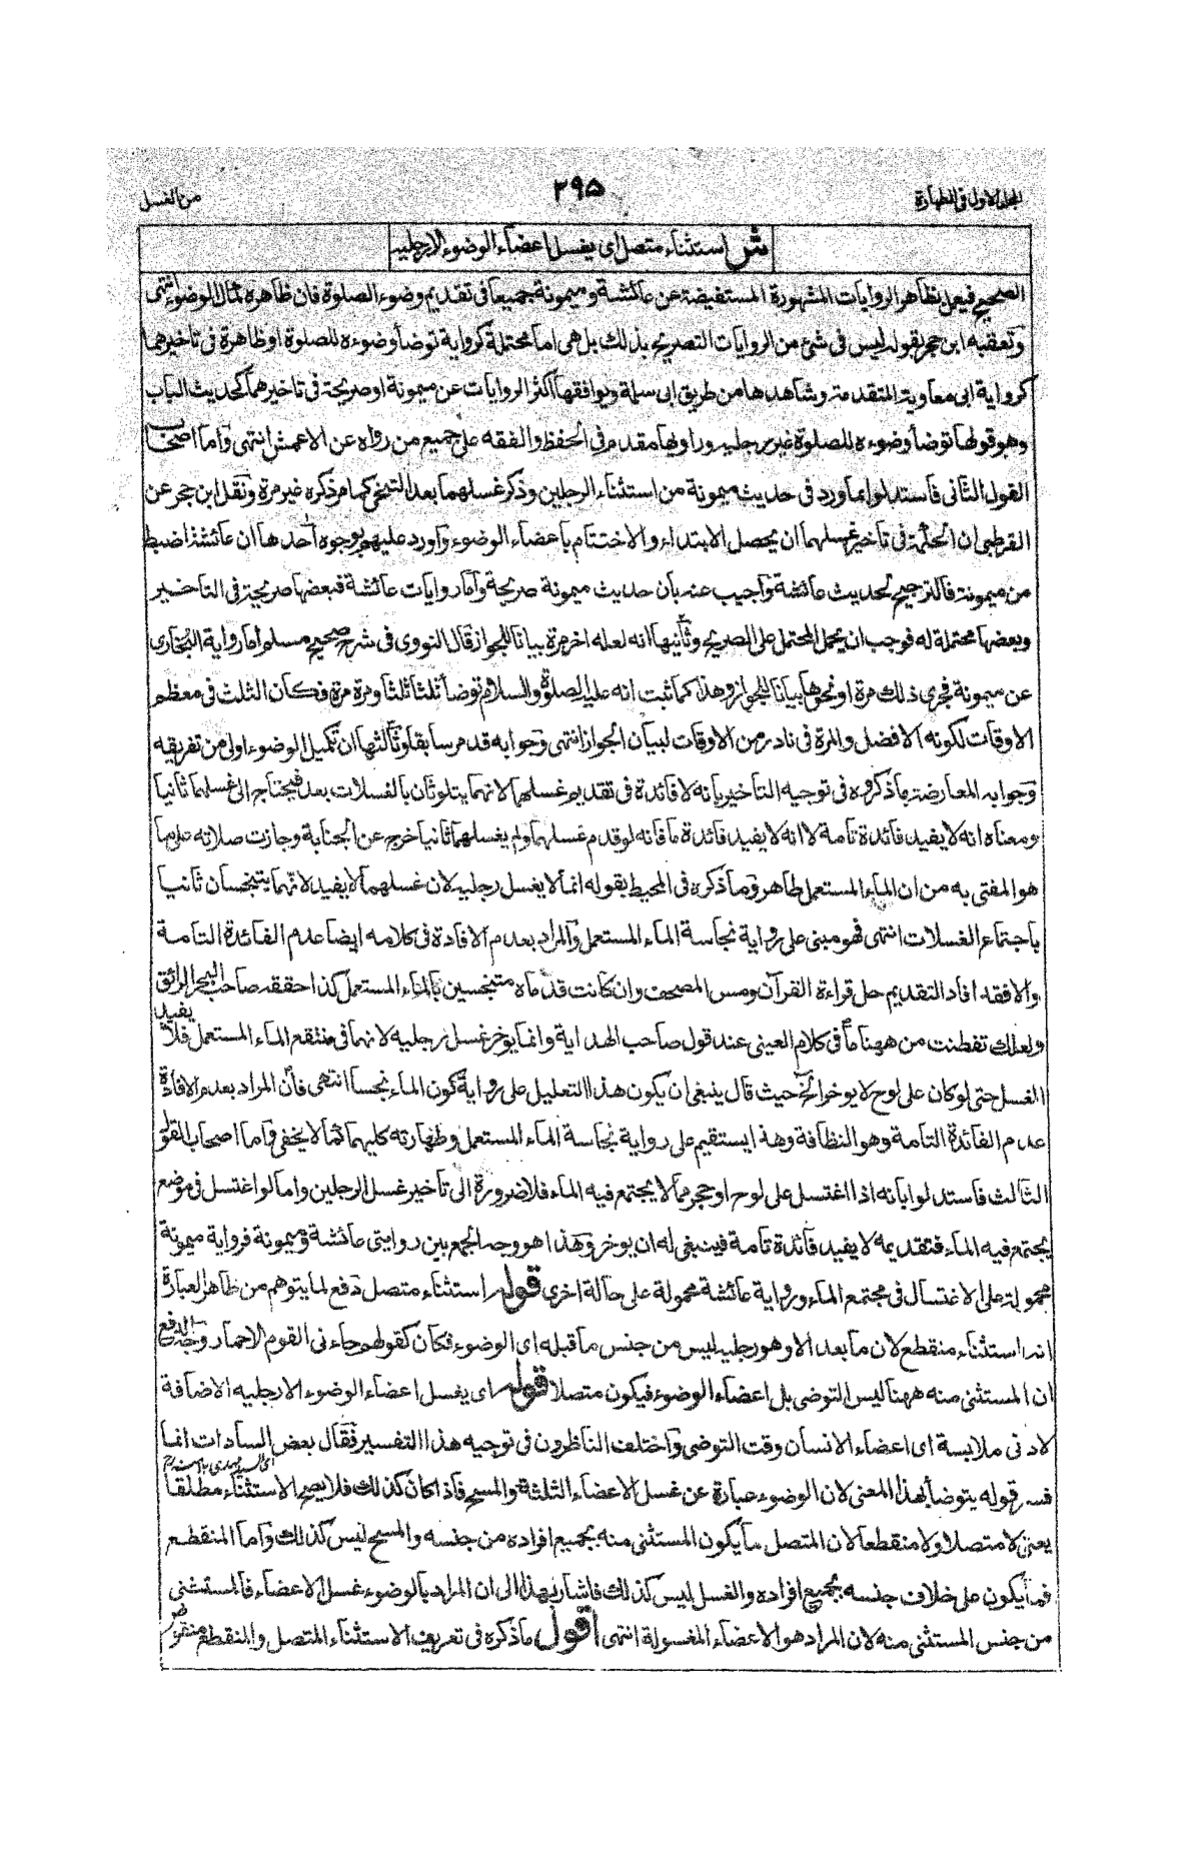 المجلد الاول فى الطهارة
٢٩٥
من الغسل
ش استثناء متصل اى يغسل اعضاء الوضوء الا رجليه
الصحيح فيعمل بظاهر الروايات المشهورة المستفيضة عن عائشة وميمونة جميعا فى تقديم وضوء الصلوة فان ظاهره كمال الوضوء انتهى
وتعقبه ابن حجر بقوله ليس فى شئ من الروايات التصريح بذلك بل هى اما محتملة كرواية توضأ وضوءه للصلوة او ظاهرة فى تاخيرهما
كرواية ابى معاوية المتقدمة وشاهدها من طريق ابى سلمة ويوافقها اكثر الروايات عن ميمونة او صريحة فى تاخيرهما كحديث الباب
وهو قولها توضأ وضوءه للصلوة غير رجليه وراويها مقدم فى الحفظ والفقه على جميع من رواه عن الاعمش انتهى واما اصحاب
القول الثانى فاستدلوا بما ورد فى حديث ميمونة من استثناء الرجلين وذكر غسلهما بعد التنحى كما مر ذكره غير مرة ونقل ابن حجر عن
القرطبى ان الحكمة فى تاخير غسلهما ان يحصل الابتداء والاختتام باعضاء الوضوء واورد عليهم بوجوه احدها ان عائشة اضبط
من ميمونة فالترجيح لحديث عائشة واجيب عنه بان حديث ميمونة صريحة واما روايات عائشة فبعضها صريحة فى التاخير
وبعضها محتملة له فوجب ان يحمل المحتمل على الصريح وثانيها انه لعله اخر مرة بيانا للجواز قال النووى فى شرح صحيح مسلم اما رواية البخارى
عن ميمونة فجرى ذلك مرة او نحوها بيانا للجواز وهذا كما ثبت انه عليه الصلوة والسلام توضأ ثلثا ثلثا ومرة مرة فكان الثلث فى معظم
الاوقات لكونه الافضل والمرة فى نادر من الاوقات لبيان الجواز انتهى وجوابه قد مر سابقا وثالثها ان تكميل الوضوء اولى من تفريقه
وجوابه المعارضة بما ذكروه فى توجيه التاخير بانه لا فائدة فى تقديم غسلهما لانهما يتلوثان بالغسلات بعد فيحتاج الى غسلهما ثانيا
ومعناه انه لا يفيد فائدة تامة لا انه لا يفيد فائدة ما فانه لو قدم غسلهما ولم يغسلهما ثانيا خرج عن الجنابة وجازت صلاته على ما
هو المفتى به من ان الماء المستعمل طاهر وما ذكره فى المحيط بقوله انما لا يغسل رجليه لان غسلهما لا يفيد لانهما يتنجسان ثانيا
باجتماع الغسلات انتهى فهو مبنى على رواية نجاسة الماء المستعمل والمراد بعدم الافادة فى كلامه ايضا عدم الفائدة التامة
والا فقد افاد التقديم حل قراءة القرآن ومس المصحف وان كانت قدماه متنجسين بالماء المستعمل كذا حققه صاحب البحر الرائق
ولعلك تفطنت من ههنا ما فى كلام العينى عند قول صاحب الهداية وانما يؤخر غسل رجليه لانهما فى منتقع الماء المستعمل فلا يفيد
الغسل حتى لو كان على لوح لا يوخر الخ حيث قال ينبغى ان يكون هذا التعليل على رواية كون الماء نجسا انتهى فان المراد بعدم الافادة
عدم الفائدة التامة وهو النظافة وهذا يستقيم على رواية نجاسة الماء المستعمل وطهارته كليهما كما لا يخفى واما اصحاب القول
الثالث فاستدلوا بانه اذا اغتسل على لوح او حجر مما لا يجتمع فيه الماء فلا ضرورة الى تاخير غسل الرجلين واما لو اغتسل فى موضع
يجتمع فيه الماء فتقديمه لا يفيد فائدة تامة فينبغى له ان يوخر وهذا هو وجه الجمع بين روايتى عائشة وميمونة فرواية ميمونة
محمولة على الاغتسال فى مجتمع الماء ورواية عائشة محمولة على حالة اخرى قوله استثناء متصل دفع لما يتوهم من ظاهر العبارة
انه استثناء منقطع لان ما بعد الا وهو رجليه ليس من جنس ما قبله اى الوضوء فكان كقولهم جاءنى القوم الا حمار وجه الدفع
ان المستثنى منه ههنا ليس التوضى بل اعضاء الوضوء فيكون متصلا قوله اى يغسل اعضاء الوضوء الا رجليه الاضافة
لادنى ملابسة اى اعضاء الانسان وقت التوضى واختلف الناظرون فى توجيه هذا التفسير فقال بعض السادات انما
فسر قوله يتوضأ بهذا المعنى لان الوضوء عبارة عن غسل الاعضاء الثلثة والمسح فاذا كان كذلك فلا يصح الاستثناء مطلقا
يعنى لا متصلا ولا منقطعا لان المتصل ما يكون المستثنى منه بجميع افراده من جنسه والمسح ليس كذلك واما المنقطع
فما يكون على خلاف جنسه بجميع افراده والغسل ليس كذلك فاشار بهذا الى ان المراد بالوضوء غسل الاعضاء فالمستثنى
من جنس المستثنى منه لان المراد هو الاعضاء المغسولة انتهى اقول ما ذكره فى تعريف الاستثناء المتصل والمنقطع منقوض